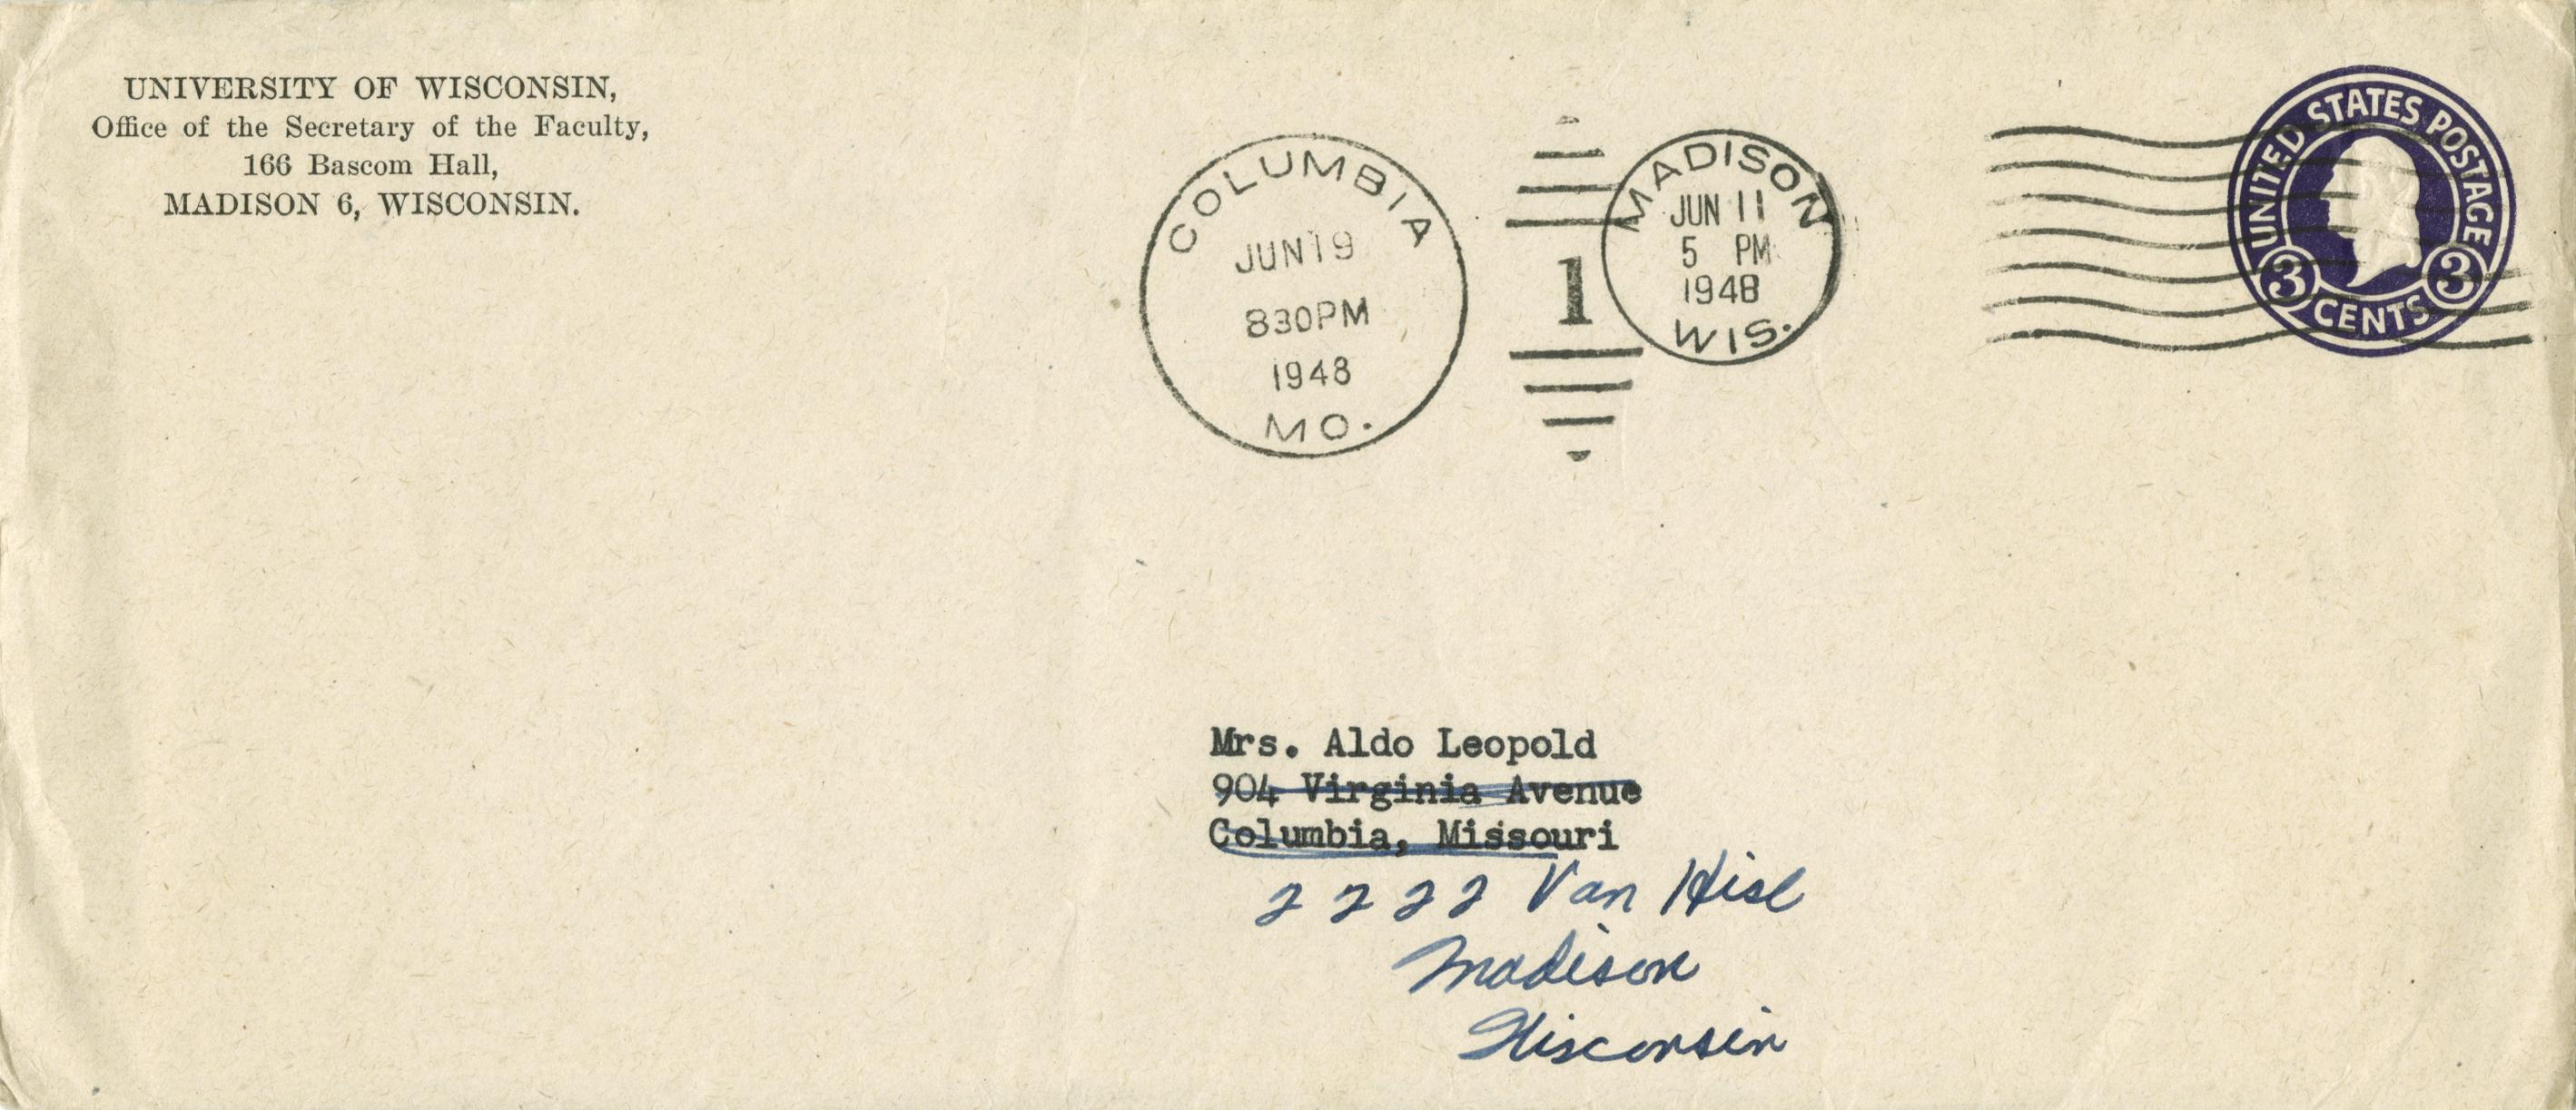 UNIVERSITY OF WISCONSIN,
Office of the Secretary of the Faculty,
166 Bascom Hall,
MADISON 6, WISCONSIN.
COLUMBIA
JUN 19
830PM
1948
MO.
1
MADISON
JUN 11
5 PM
1948
WIS.
UNITED STATES POSTAGE
3 3
CENTS
Mrs. Aldo Leopold
904 Virginia Avenue
Columbia, Missouri
2222 Van Hise
Madison
Wisconsin